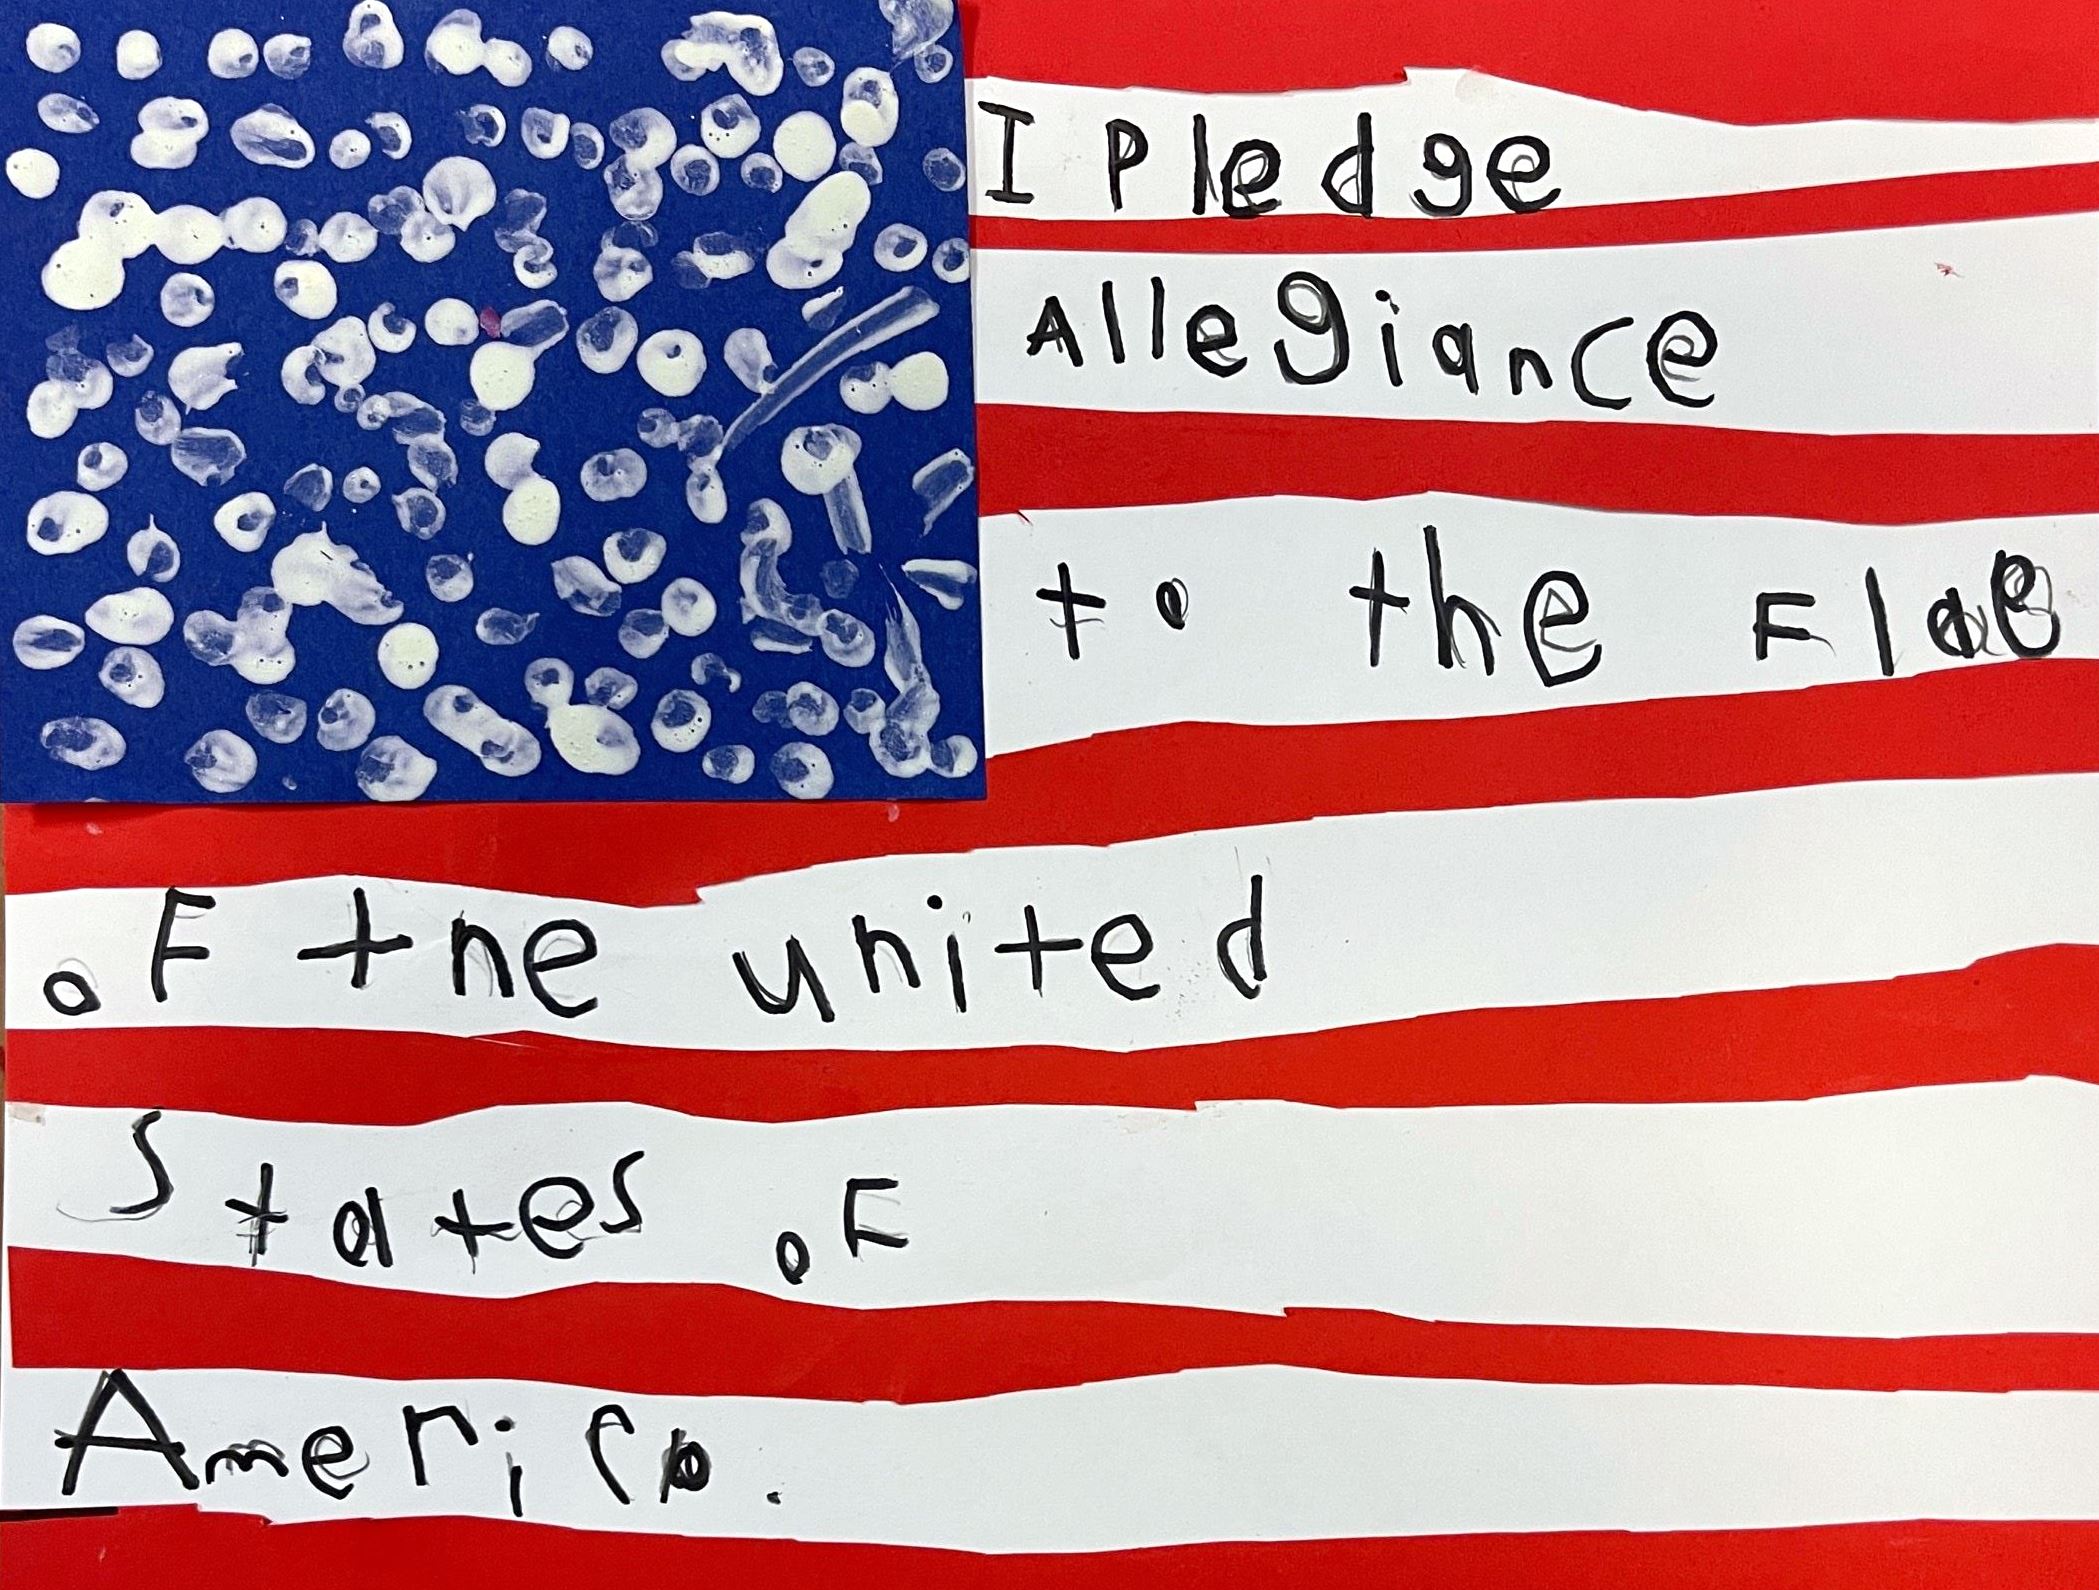 I Pledge
Allegiance
to the Flag
oF the united
States oF
America.